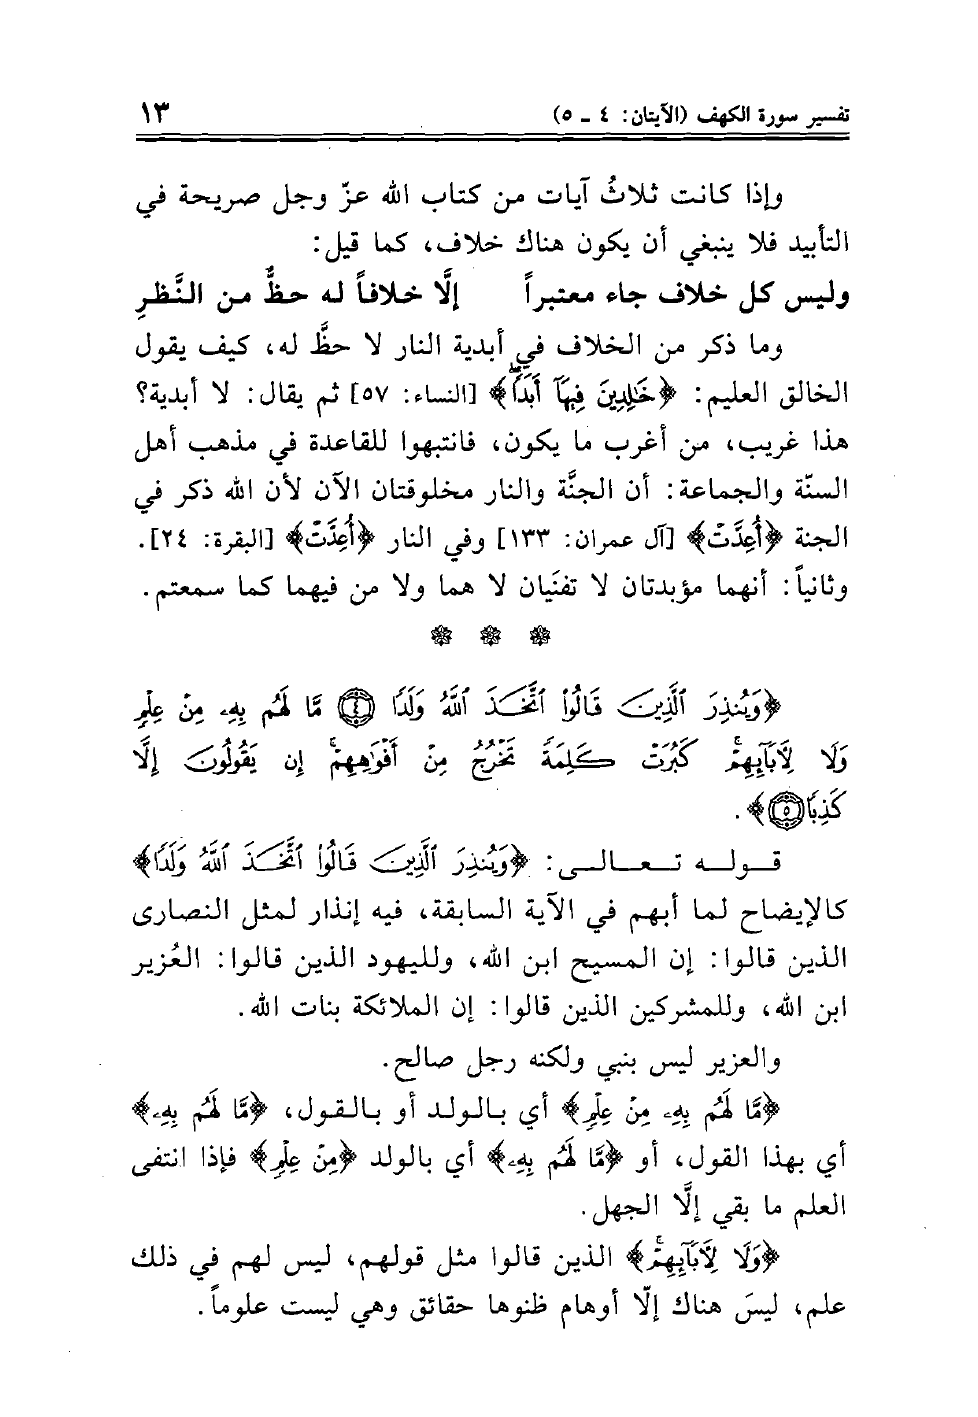 تفسير سورة الكهف (الآيتان: ٤ ـ ٥) ١٣
وإذا كانت ثلاثُ آيات من كتاب الله عزّ وجل صريحة في
التأبيد فلا ينبغي أن يكون هناك خلاف، كما قيل:
وليس كل خلاف جاء معتبراً إلَّا خلافاً له حظٌّ من النَّظرِ
وما ذكر من الخلاف في أبدية النار لا حظَّ له، كيف يقول
الخالق العليم: ﴿خَٰلِدِينَ فِيهَآ أَبَدٗا﴾ [النساء: ٥٧] ثم يقال: لا أبدية؟
هذا غريب، من أغرب ما يكون، فانتبهوا للقاعدة في مذهب أهل
السنّة والجماعة: أن الجنَّة والنار مخلوقتان الآن لأن الله ذكر في
الجنة ﴿أُعِدَّتْ﴾ [آل عمران: ١٣٣] وفي النار ﴿أُعِدَّتْ﴾ [البقرة: ٢٤].
وثانياً: أنهما مؤبدتان لا تفنَيان لا هما ولا من فيهما كما سمعتم.
﴿وَيُنذِرَ ٱلَّذِينَ قَالُوا۟ ٱتَّخَذَ ٱللَّهُ وَلَدٗا ٤ مَّا لَهُم بِهِۦ مِنْ عِلْمٖ
وَلَا لِأٓبَآئِهِمْۚ كَبُرَتْ كَلِمَةٗ تَخْرُجُ مِنْ أَفْوَٰهِهِمْۚ إِن يَقُولُونَ إِلَّا
كَذِبٗا ٥﴾.
قـولـه تـعـالـى: ﴿وَيُنذِرَ ٱلَّذِينَ قَالُوا۟ ٱتَّخَذَ ٱللَّهُ وَلَدٗا﴾
كالإيضاح لما أبهم في الآية السابقة، فيه إنذار لمثل النصارى
الذين قالوا: إن المسيح ابن الله، ولليهود الذين قالوا: العُزير
ابن الله، وللمشركين الذين قالوا: إن الملائكة بنات الله.
والعزير ليس بنبي ولكنه رجل صالح.
﴿مَّا لَهُم بِهِۦ مِنْ عِلْمٖ﴾ أي بالولد أو بالقول، ﴿مَّا لَهُم بِهِۦ﴾
أي بهذا القول، أو ﴿مَّا لَهُم بِهِۦ﴾ أي بالولد ﴿مِنْ عِلْمٖ﴾ فإذا انتفى
العلم ما بقي إلَّا الجهل.
﴿وَلَا لِأٓبَآئِهِمْۚ﴾ الذين قالوا مثل قولهم، ليس لهم في ذلك
علم، ليسَ هناك إلّا أوهام ظنوها حقائق وهي ليست علوماً.